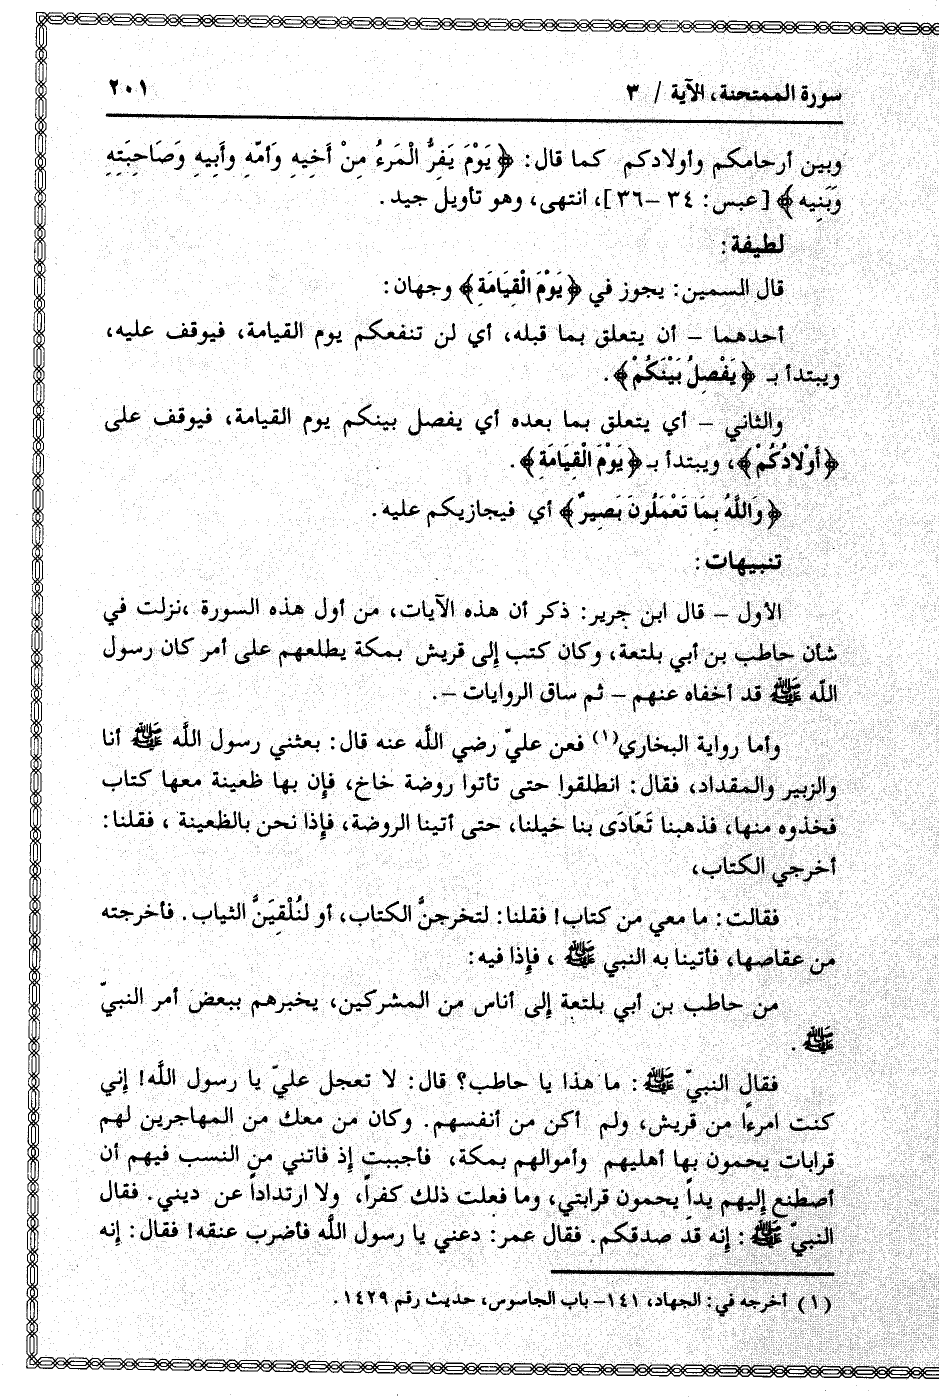 سورة الممتحنة، الآية / ٣
٢٠١
وبين أرحامكم وأولادكم كما قال: ﴿يَوْمَ يَفِرُّ الْمَرءُ مِنْ أَخيهِ وَأمّهِ وأبيهِ وَصَاحِبَتِهِ
وَبَنيه﴾ [عبس: ٣٤ –٣٦]، انتهى، وهو تأويل جيد.
لطيفة:
قال السمين: يجوز في ﴿يَوْمَ الْقِيَامَةِ﴾ وجهان:
أحدهما – أن يتعلق بما قبله، أي لن تنفعكم يوم القيامة، فيوقف عليه،
ويبتدأ بـ ﴿يَفْصِلُ بَيْنَكُمْ﴾.
والثاني – أي يتعلق بما بعده أي يفصل بينكم يوم القيامة، فيوقف على
﴿أَوْلادُكُمْ﴾، ويبتدأ بـ ﴿يَوْمَ الْقِيَامَةِ﴾.
﴿وَاللَّهُ بِمَا تَعْمَلُونَ بَصِيرٌ﴾ أي فيجازيكم عليه.
تنبيهات:
الأول – قال ابن جرير: ذكر أن هذه الآيات، من أول هذه السورة ،نزلت في
شأن حاطب بن أبي بلتعة، وكان كتب إلى قريش بمكة يطلعهم على أمر كان رسول
اللّه ﷺ قد أخفاه عنهم – ثم ساق الروايات –.
وأما رواية البخاري(١) فعن عليّ رضي اللَّه عنه قال: بعثني رسول اللَّه ﷺ أنا
والزبير والمقداد، فقال: انطلقوا حتى تأتوا روضة خاخ، فإن بها ظعينة معها كتاب
فخذوه منها، فذهبنا تَعَادَى بنا خيلنا، حتى أتينا الروضة، فإذا نحن بالظعينة ، فقلنا:
أخرجي الكتاب،
فقالت: ما معي من كتاب! فقلنا: لتخرجنَّ الكتاب، أو لنُلْقِيَنَّ الثياب. فأخرجته
من عقاصها، فأتينا به النبي ﷺ ، فإذا فيه:
من حاطب بن أبي بلتعة إلى أناس من المشركين، يخبرهم ببعض أمر النبيّ
ﷺ .
فقال النبيّ ﷺ : ما هذا يا حاطب؟ قال: لا تعجل عليّ يا رسول اللَّه! إني
كنت امرءاً من قريش، ولم أكن من أنفسهم. وكان من معك من المهاجرين لهم
قرابات يحمون بها أهليهم وأموالهم بمكة، فأحببت إذ فاتني من النسب فيهم أن
أصطنع إليهم يداً يحمون قرابتي، وما فعلت ذلك كفراً، ولا ارتداداً عن ديني. فقال
النبيّ ﷺ : إنه قد صدقكم. فقال عمر: دعني يا رسول اللَّه فأضرب عنقه! فقال: إنه
(١) أخرجه في: الجهاد، ١٤١– باب الجاسوس، حديث رقم ١٤٢٩.